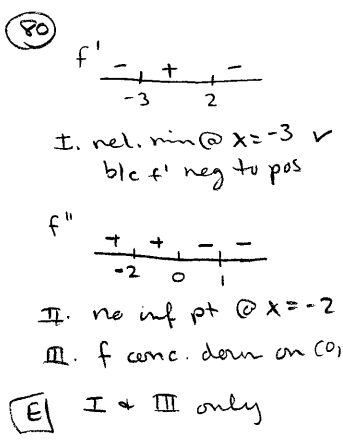 80
f' - + -
-3 2
I. rel. min @ x = -3 ✓
b/c f' neg to pos
f"
+ + - -
-2 0 1
II. no inf pt @ x = -2
III. f conc. down on (0,
E I & III only